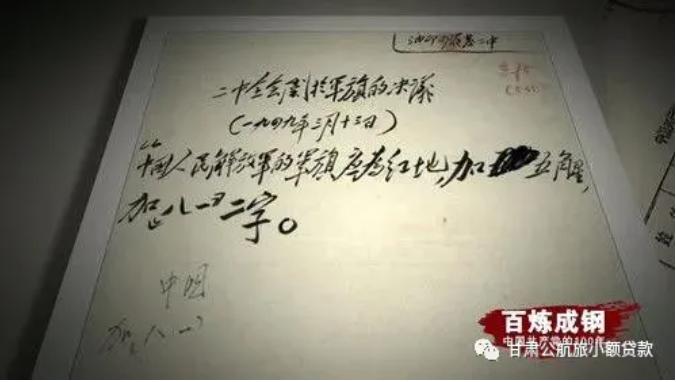 二中全会关于军旗的决议
(一九四九年三月十三日)
中国人民解放军的军旗应为红地,加五角星,
加八一二字。
中国
加八一
百炼成钢
中国共产党的100年
甘肃公航旅小额贷款